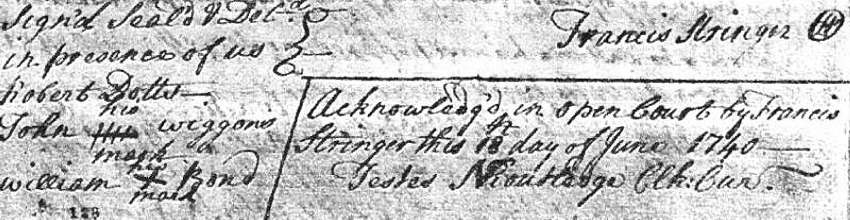 Sign'd Seal'd & Del.d
in presence of us
Francis Stringer
Robert Dotts
his
John wiggons
mark
his
william + Bond
mark
Acknowledg'd in open Court by Francis
Stringer this day of June 1740
Testes N Routledge Clk: Cur.
128